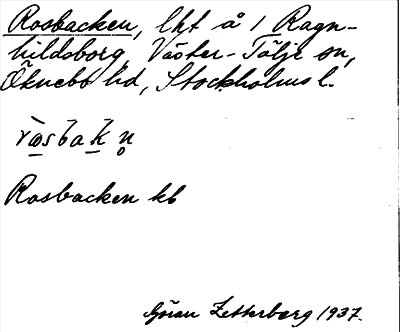 Rosbacken, lht å 1 Ragn-
hildsborg, Väster-Tälje sn,
Öknebo hd, Stockholms l.
Rosbacken kb
Göran Zetterberg 1937.